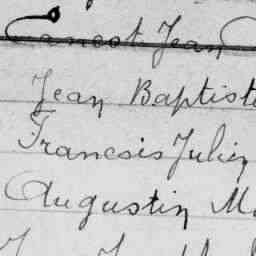 Jean
Jean Baptist
Francois Julien
Augustin M